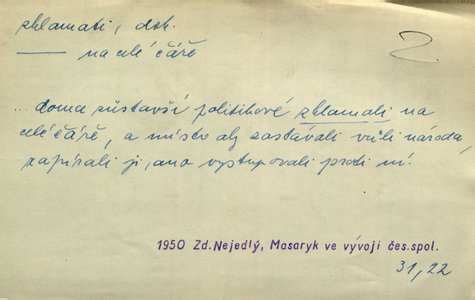 zklamati, dok.
—— na celé čáře
... doma zůstavší politikové zklamali na
celé čáře, a místo aby zastávali vůli národa,
zapírali ji, ano vystupovali proti ní.
1950 Zd. Nejedlý, Masaryk ve vývoji čes. spol.
31, 22